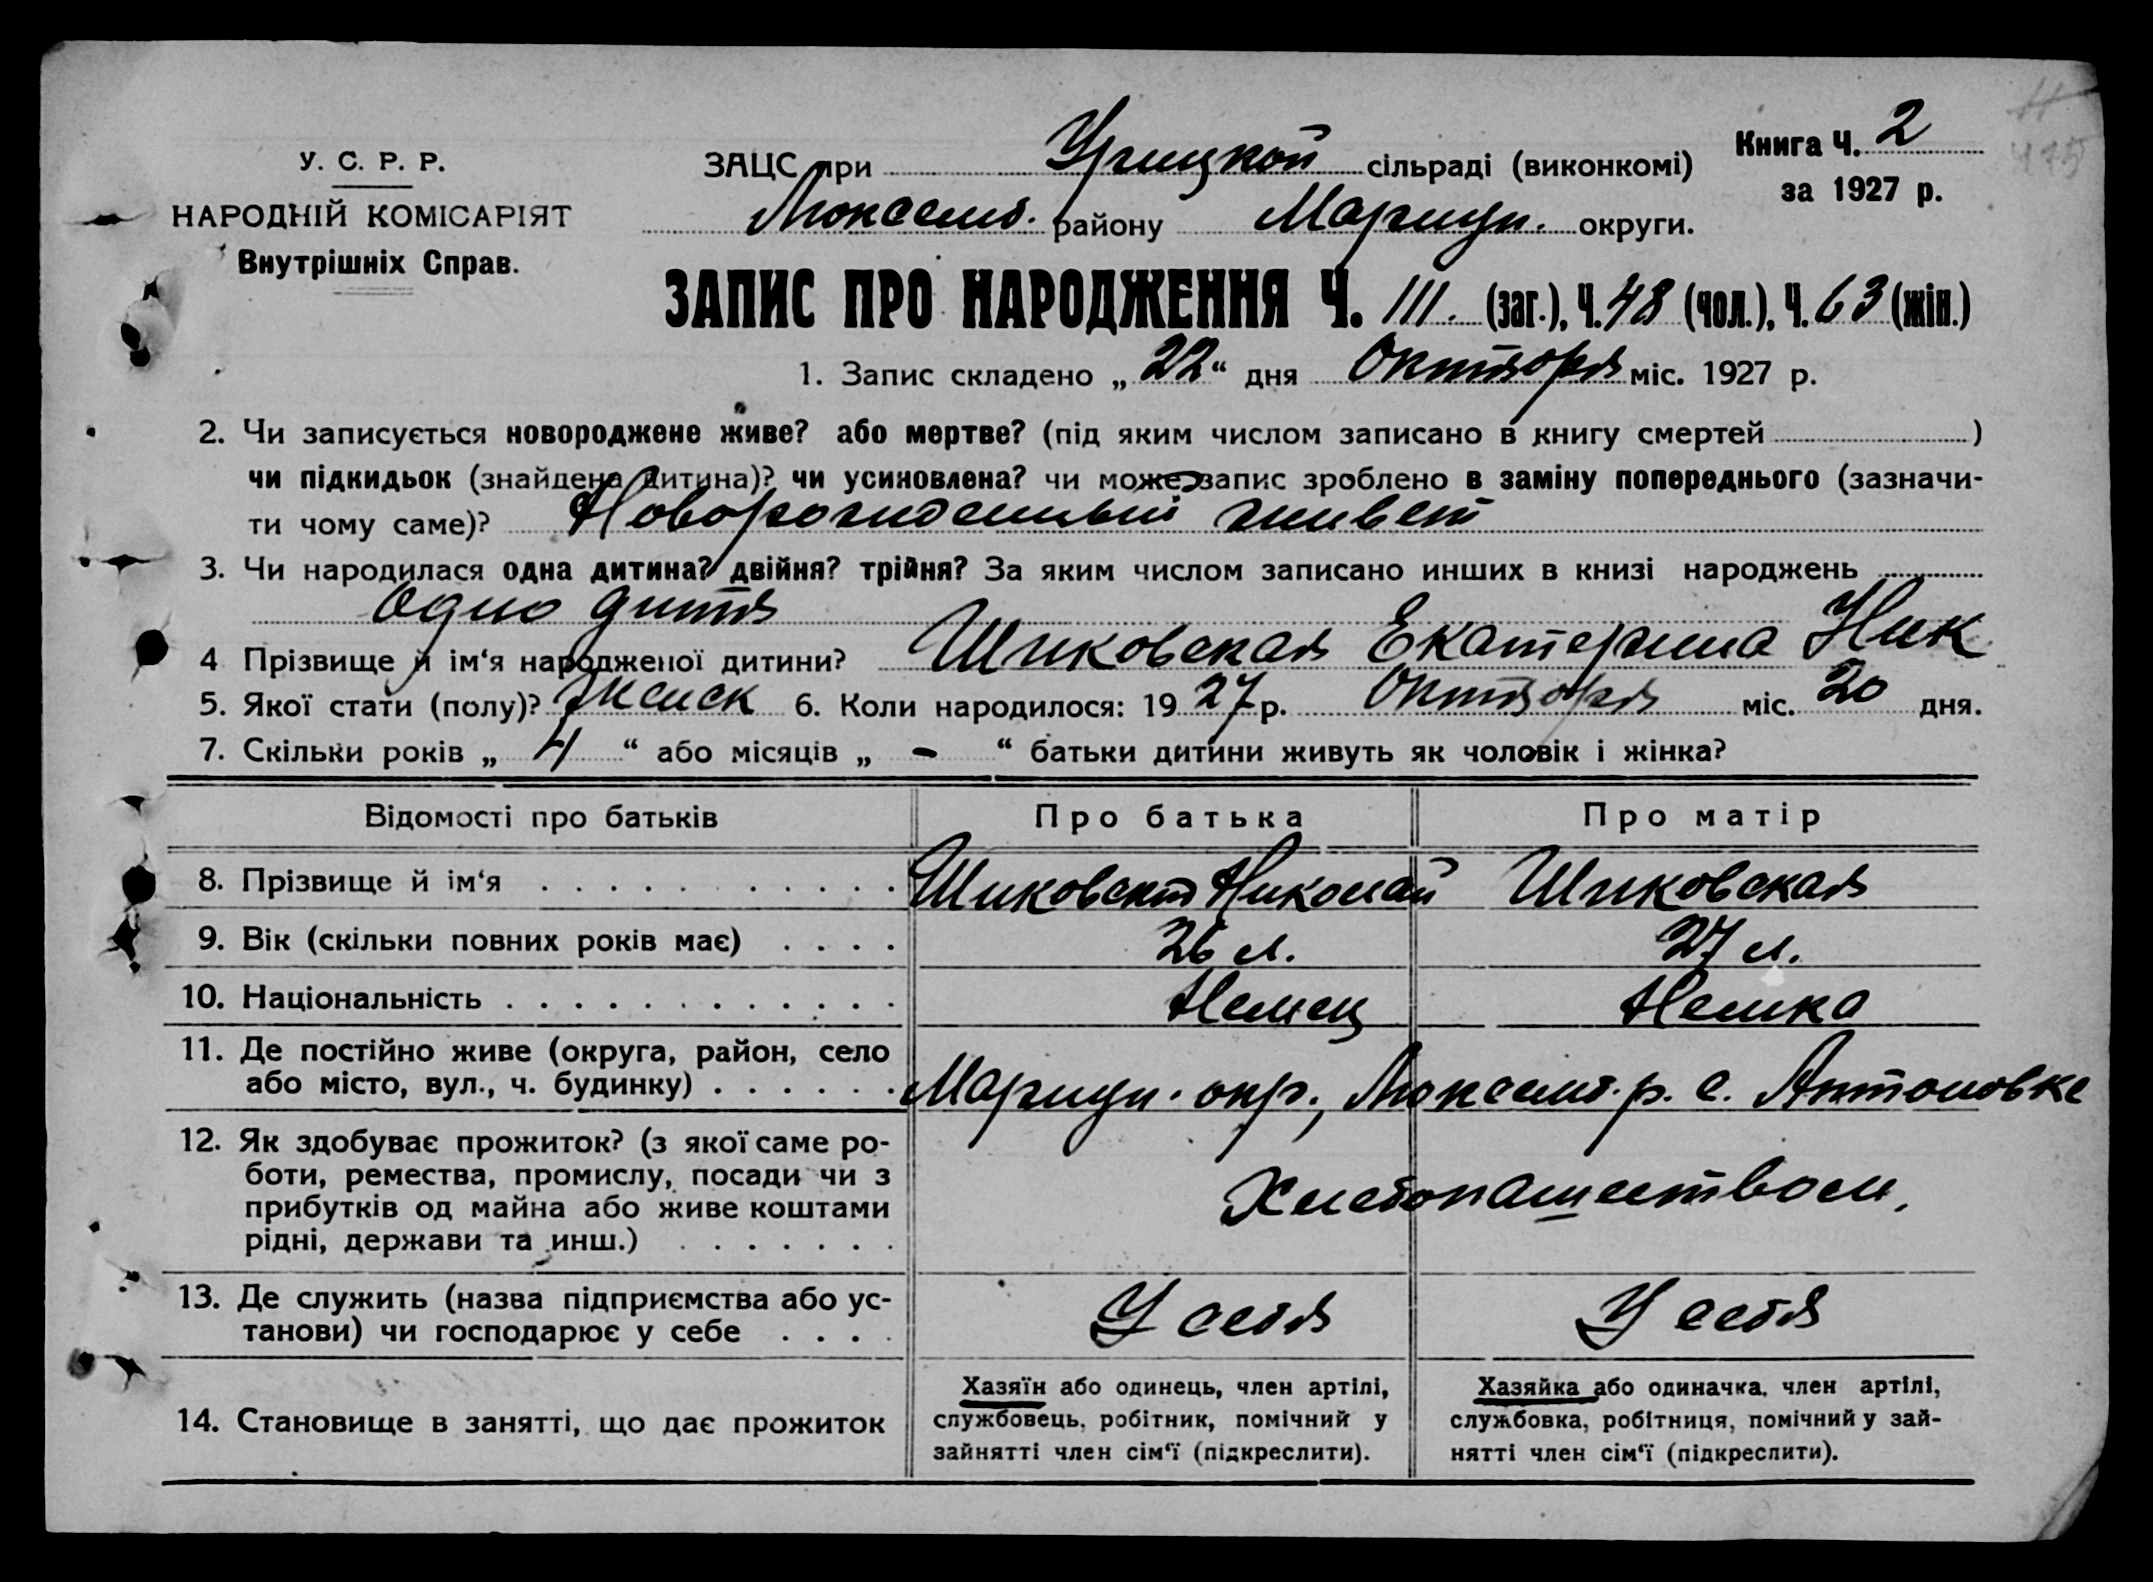 У. С. Р. Р.
НАРОДНІЙ КОМІСАРІЯТ
Внутрішніх Справ.
ЗАЦС при Урицкой сільраді (виконкомі)
Люксемб. району Мариуп. округи.
Книга Ч. 2
за 1927 р.
ЗАПИС ПРО НАРОДЖЕННЯ Ч. 111. (заг.), Ч. 48 (чол.), Ч. 63 (жін.)
1. Запис складено „ 22 “ дня Октября міс. 1927 р.
2. Чи записується новороджене живе? або мертве? (під яким числом записано в книгу смертей )
чи підкидьок (знайдена дитина)? чи усиновлена? чи може запис зроблено в заміну попереднього (зазначи-
ти чому саме)? Новорожденный живет
3. Чи народилася одна дитина? двійня? трійня? За яким числом записано инших в книзі народжень
Одно дитя
4 Прізвище й ім‘я народженої дитини? Шиковская Екатерина Ник
5. Якої стати (полу)? Женск 6. Коли народилося: 19 27 р. Октября міс. 20 дня.
7. Скільки років „ 4 “ або місяців „ - “ батьки дитини живуть як чоловік і жінка?
Відомості про батьків Про батька Про матір
8. Прізвище й ім‘я Шиковскт Николай Шиковская
9. Вік (скільки повних років має) 26 л. 27 л.
10. Національність Немец Немка
11. Де постійно живе (округа, район, село
або місто, вул., ч. будинку) Мариуп. окр., Люксемб. р. с. Антоновке
12. Як здобуває прожиток? (з якої саме ро-
боти, ремества, промислу, посади чи з
прибутків од майна або живе коштами
рідні, держави та инш.)
Хлебопашеством.
13. Де служить (назва підприємства або ус-
танови) чи господарює у себе У себя У себя
14. Становище в занятті, що дає прожиток
Хазяїн або одинець, член артілі,
службовець, робітник, помічний у
зайнятті член сім‘ї (підкреслити).
Хазяйка або одиначка, член артілі,
службовка, робітниця, помічний у зай-
нятті член сім‘ї (підкреслити).